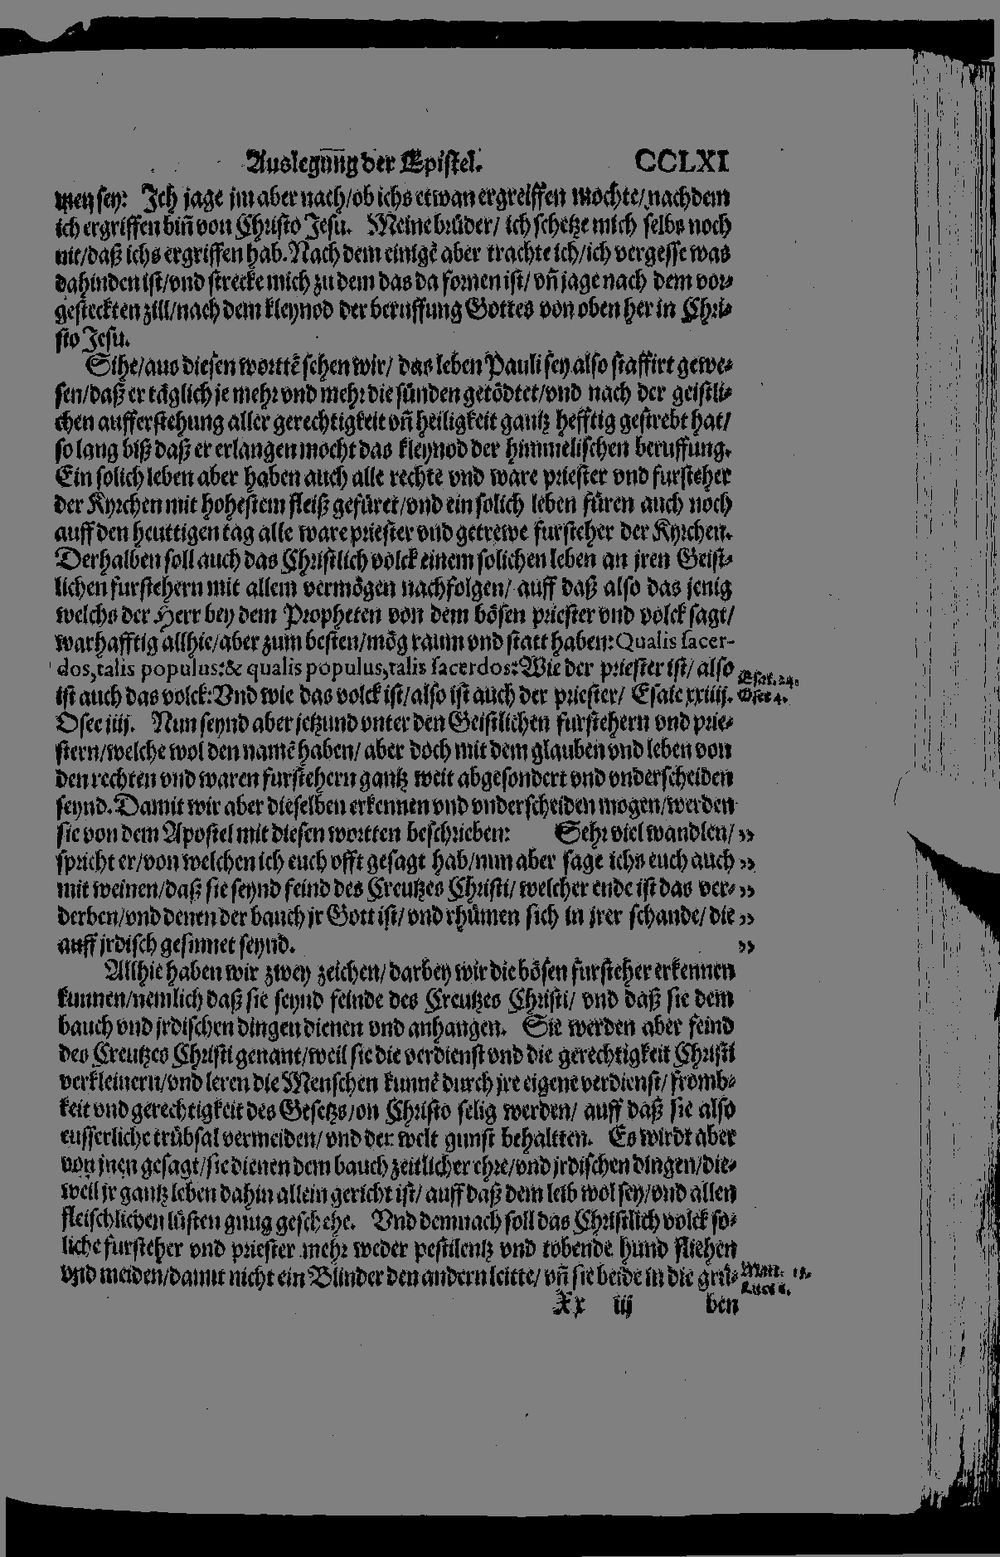 Auslegūng der Epistel. CCLXI
men sey: Jch jage jm aber nach/ob ichs etwan ergreiffen mochte/nachdem
ich ergriffen biñ von Christo Jesu. Meine brüder/ ich schetze mich selbs noch
nit/daß ichs ergriffen hab. Nach dem einigē aber trachte ich/ich vergesse was
dahinden ist/vnd strecke mich zu dem das da fornen ist/ vñ jage nach dem vor-
gesteckten zill/nach dem kleynod der beruffung Gottes von oben her in Chri-
sto Jesu.
Sihe/aus diesen worttē sehen wir/ das leben Pauli sey also staffirt gewe-
sen/daß er täglich je mehr vnd mehr die sünden getödtet/vnd nach der geistli-
chen aufferstehung aller gerechtigkeit vñ heiligkeit gantz hefftig gestrebt hat/
so lang biß daß er erlangen mocht das kleynod der himmelischen beruffung.
Ein solich leben aber haben auch alle rechte vnd ware priester vnd fursteher
der Kyrchen mit hohestem fleiß gefüret/vnd ein solich leben füren auch noch
auff den heuttigen tag alle ware priester vnd getrewe fursteher der Kyrchen.
Derhalben soll auch das Christlich volck einem solichen leben an jren Geist-
lichen furstehern mit allem vermögen nachfolgen/ auff daß also das jenig
welchs der Herr bey dem Propheten von dem bösen priester vnd volck sagt/
warhafftig allhie/aber zum besten/mög raum vnd statt haben: Qualis sacer-
dos, talis populus: & qualis populus, talis sacerdos: Wie der priester ist/ also
ist auch das volck: Vnd wie das volck ist/also ist auch der priester/ Esaie xxiiij.
Esai. 24.
Osee 4.
Osee iiij. Nun seynd aber jetzund vnter den Geistlichen furstehern vnd prie-
stern/welche wol den namē haben/ aber doch mit dem glauben vnd leben von
den rechten vnd waren furstehern gantz weit abgesondert vnd vnderscheiden
seynd. Damit wir aber dieselben erkennen vnd vnderscheiden mogen/werden
sie von dem Apostel mit diesen wortten beschrieben: Sehr viel wandlen/ „
spricht er/von welchen ich euch offt gesagt hab/nun aber sage ichs euch auch „
mit weinen/daß sie seynd feind des Creutzes Christi/ welcher ende ist das ver- „
derben/vnd denen der bauch jr Gott ist/ vnd rhümen sich in jrer schande/ die „
auff jrdisch gesinnet seynd. „
Allhie haben wir zwey zeichen/ darbey wir die bösen fursteher erkennen
kunnen/nemlich daß sie seynd feinde des Creutzes Christi/ vnd daß sie dem
bauch vnd jrdischen dingen dienen vnd anhangen. Sie werden aber feind
des Creutzes Christi genant/weil sie die verdienst vnd die gerechtigkeit Christi
verkleinern/vnd leren die Menschen kunnē durch jre eigene verdienst/ fromb-
keit vnd gerechtigkeit des Gesetzs/on Christo selig werden/ auff daß sie also
eusserliche trübsal vermeiden/ vnd der welt gunst behaltten. Es wirdt aber
von jnen gesagt/sie dienen dem bauch zeitlicher ehre/vnd jrdischen dingen/die-
weil jr gantz leben dahin allein gericht ist/ auff daß dem leib wol sey/vnd allen
fleischlichen lüsten gnug geschehe. Vnd demnach soll das Christlich volck so-
liche fursteher vnd priester mehr weder pestilentz vnd tobende hund fliehen
vnd meiden/damit nicht ein Blinder den andern leitte/ vñ sie beide in die grü-
Matt. 15.
Luce 6.
Xx iij ben